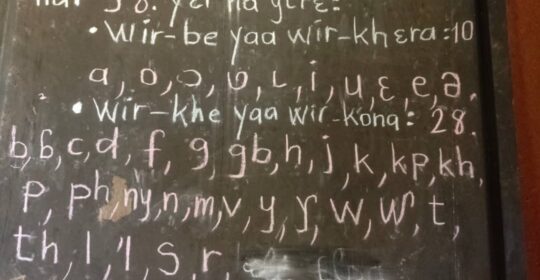 38.
• wir-be yaa wir-khɛra:10
a, o, ɔ, ʋ, ɩ, i, u, ɛ, e, ə.
• wir-khe yaa wir-kona: 28.
b, ɓ, c, d, f, g, gb, h, j, k, kp, kh,
p, ph, ny, n, m, v, y, ƴ, w, 'w, t,
th, l, 'l, s, r,